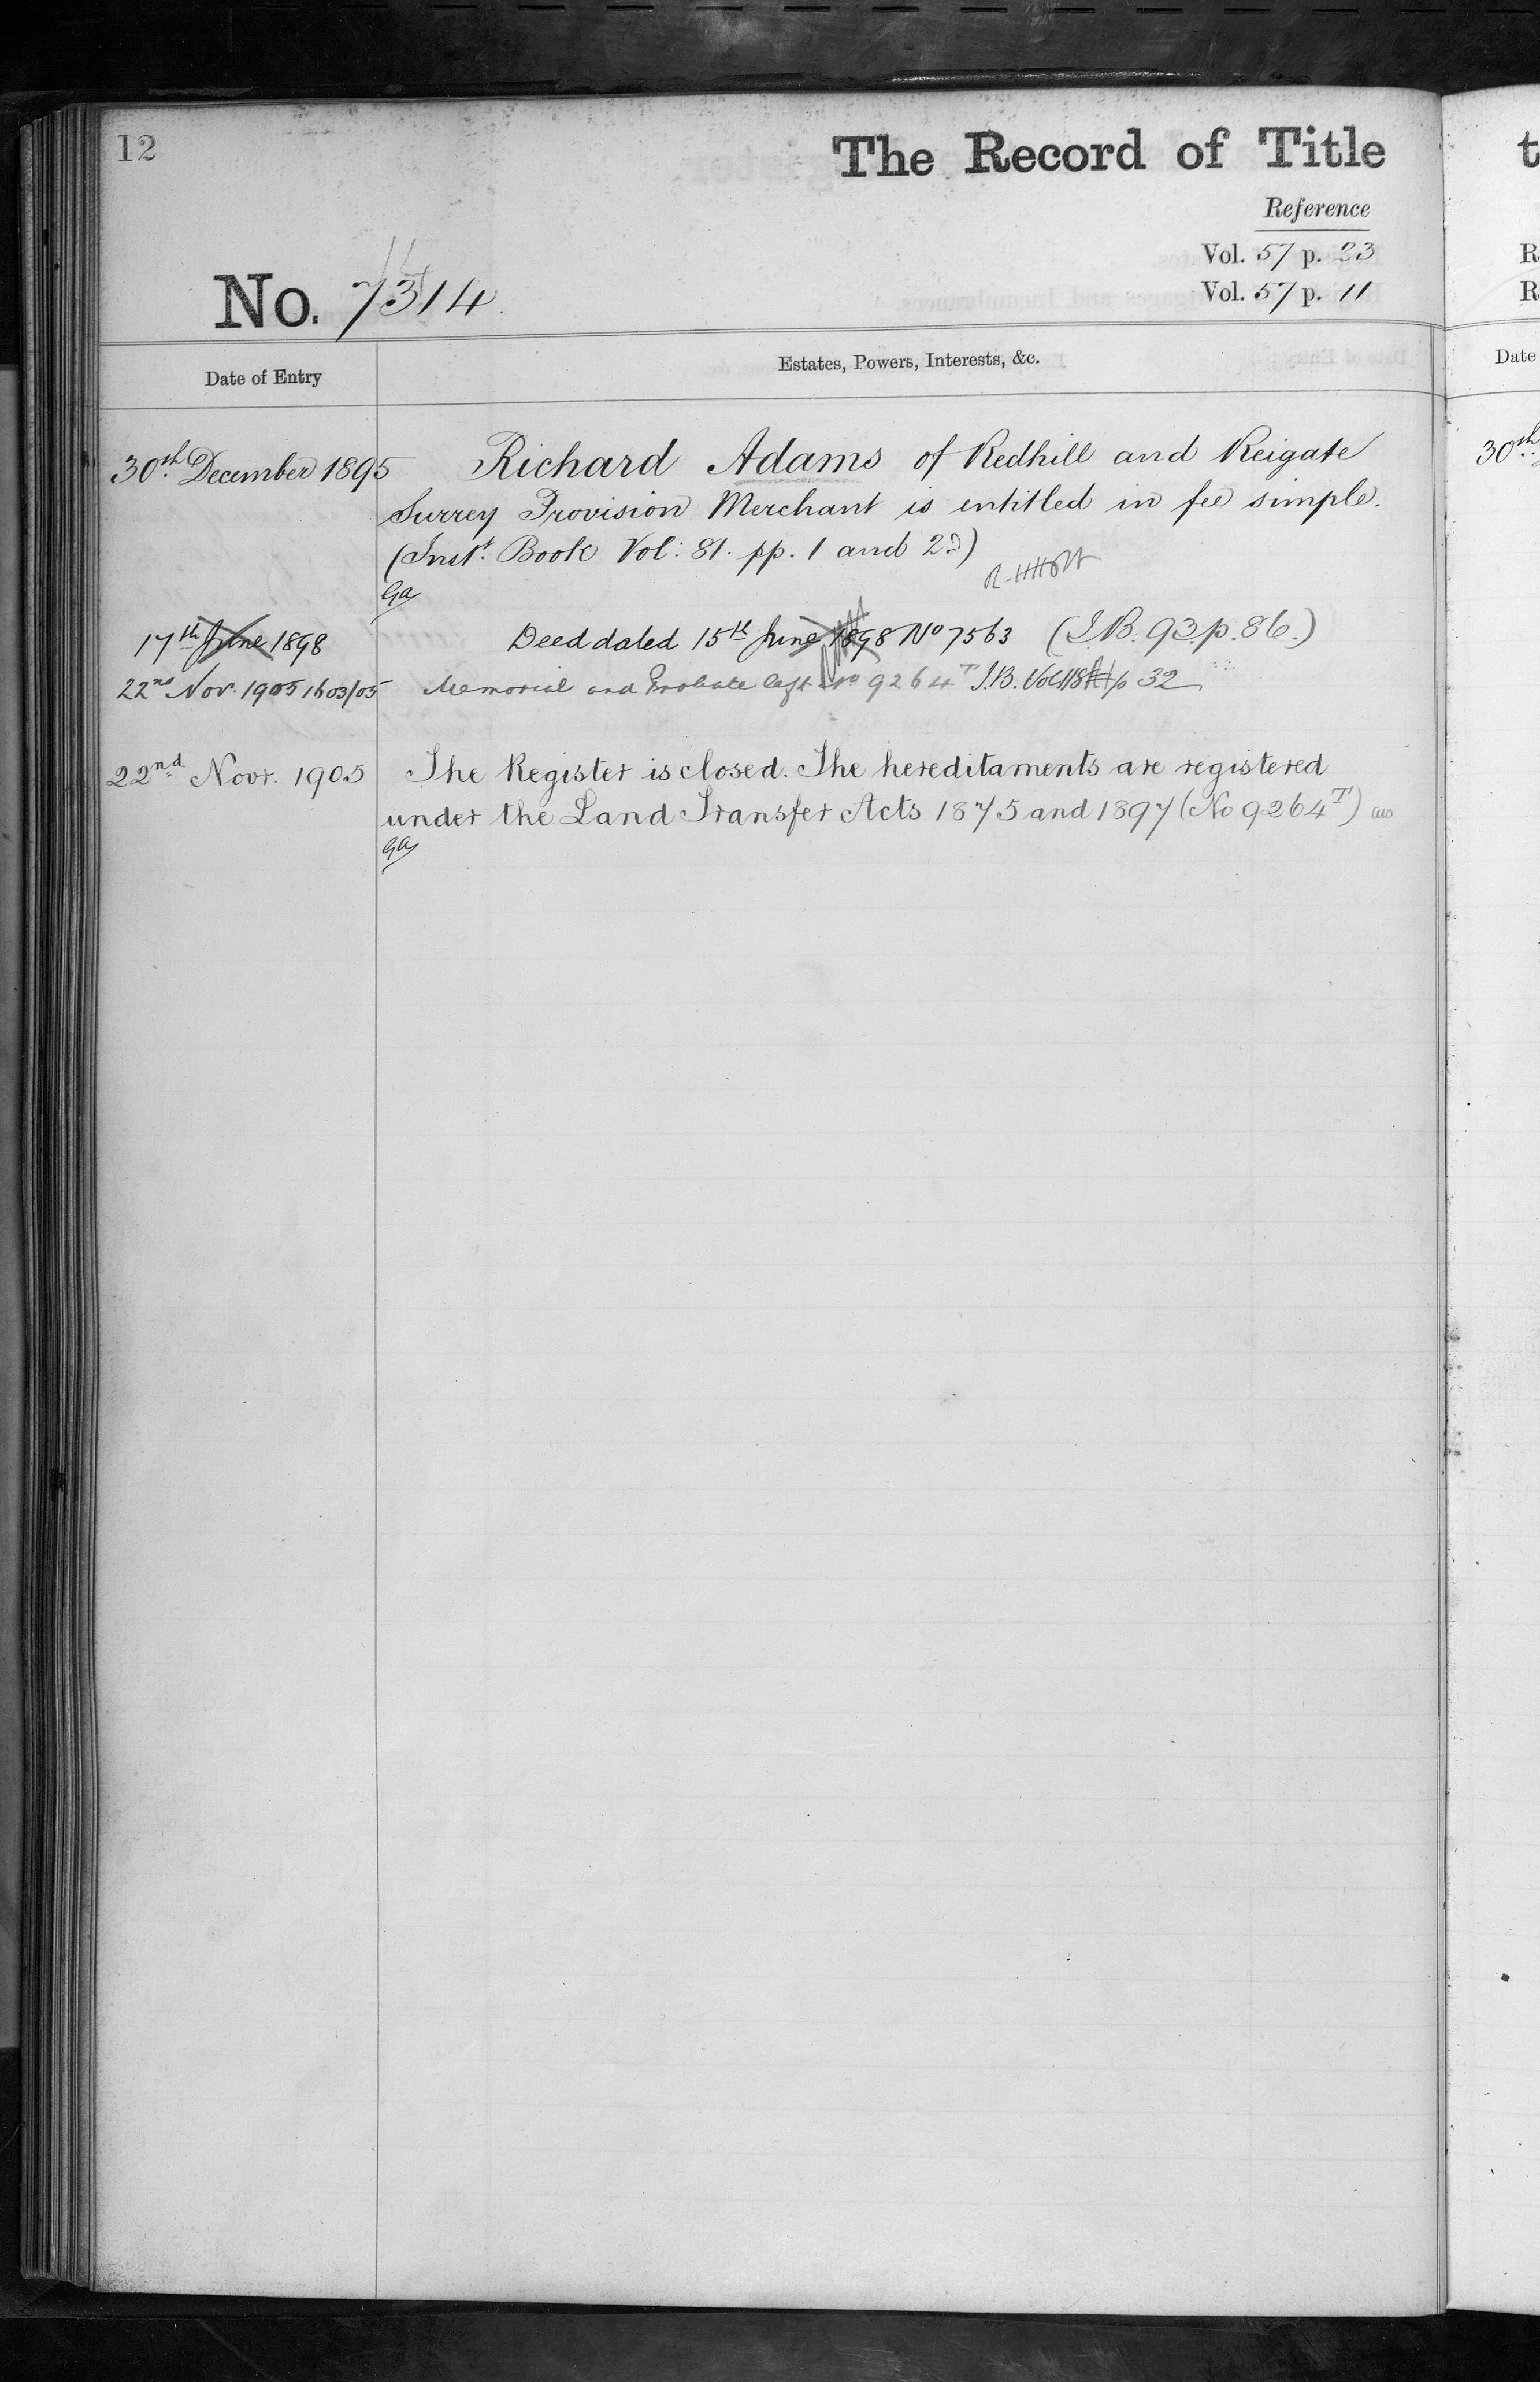 12
The Record of Title
Reference
Vol. 57 p. 23
Vol. 57 p. 11
No. 7314.
Date of Entry
Estates, Powers, Interests, &c.
30th December 1895
Richard Adams of Redhill and Reigate
Surrey Provision Merchant is entitled in fee simple.
(Inst. Book Vol: 81. pp. 1 and 2.)
Ga
17th June 1898
Deed dated 15th June 1898 No 7563 (I.B. 93. p. 86.)
22nd Nov. 1905 1603/05
Memorial and Probate left No 9264T I.B. Vol 118 p 32
22nd Novr. 1905
The Register is closed. The hereditaments are registered
under the Land Transfer Acts 1875 and 1897 (No 9264T)
Ga
t
R
R
Date
30th